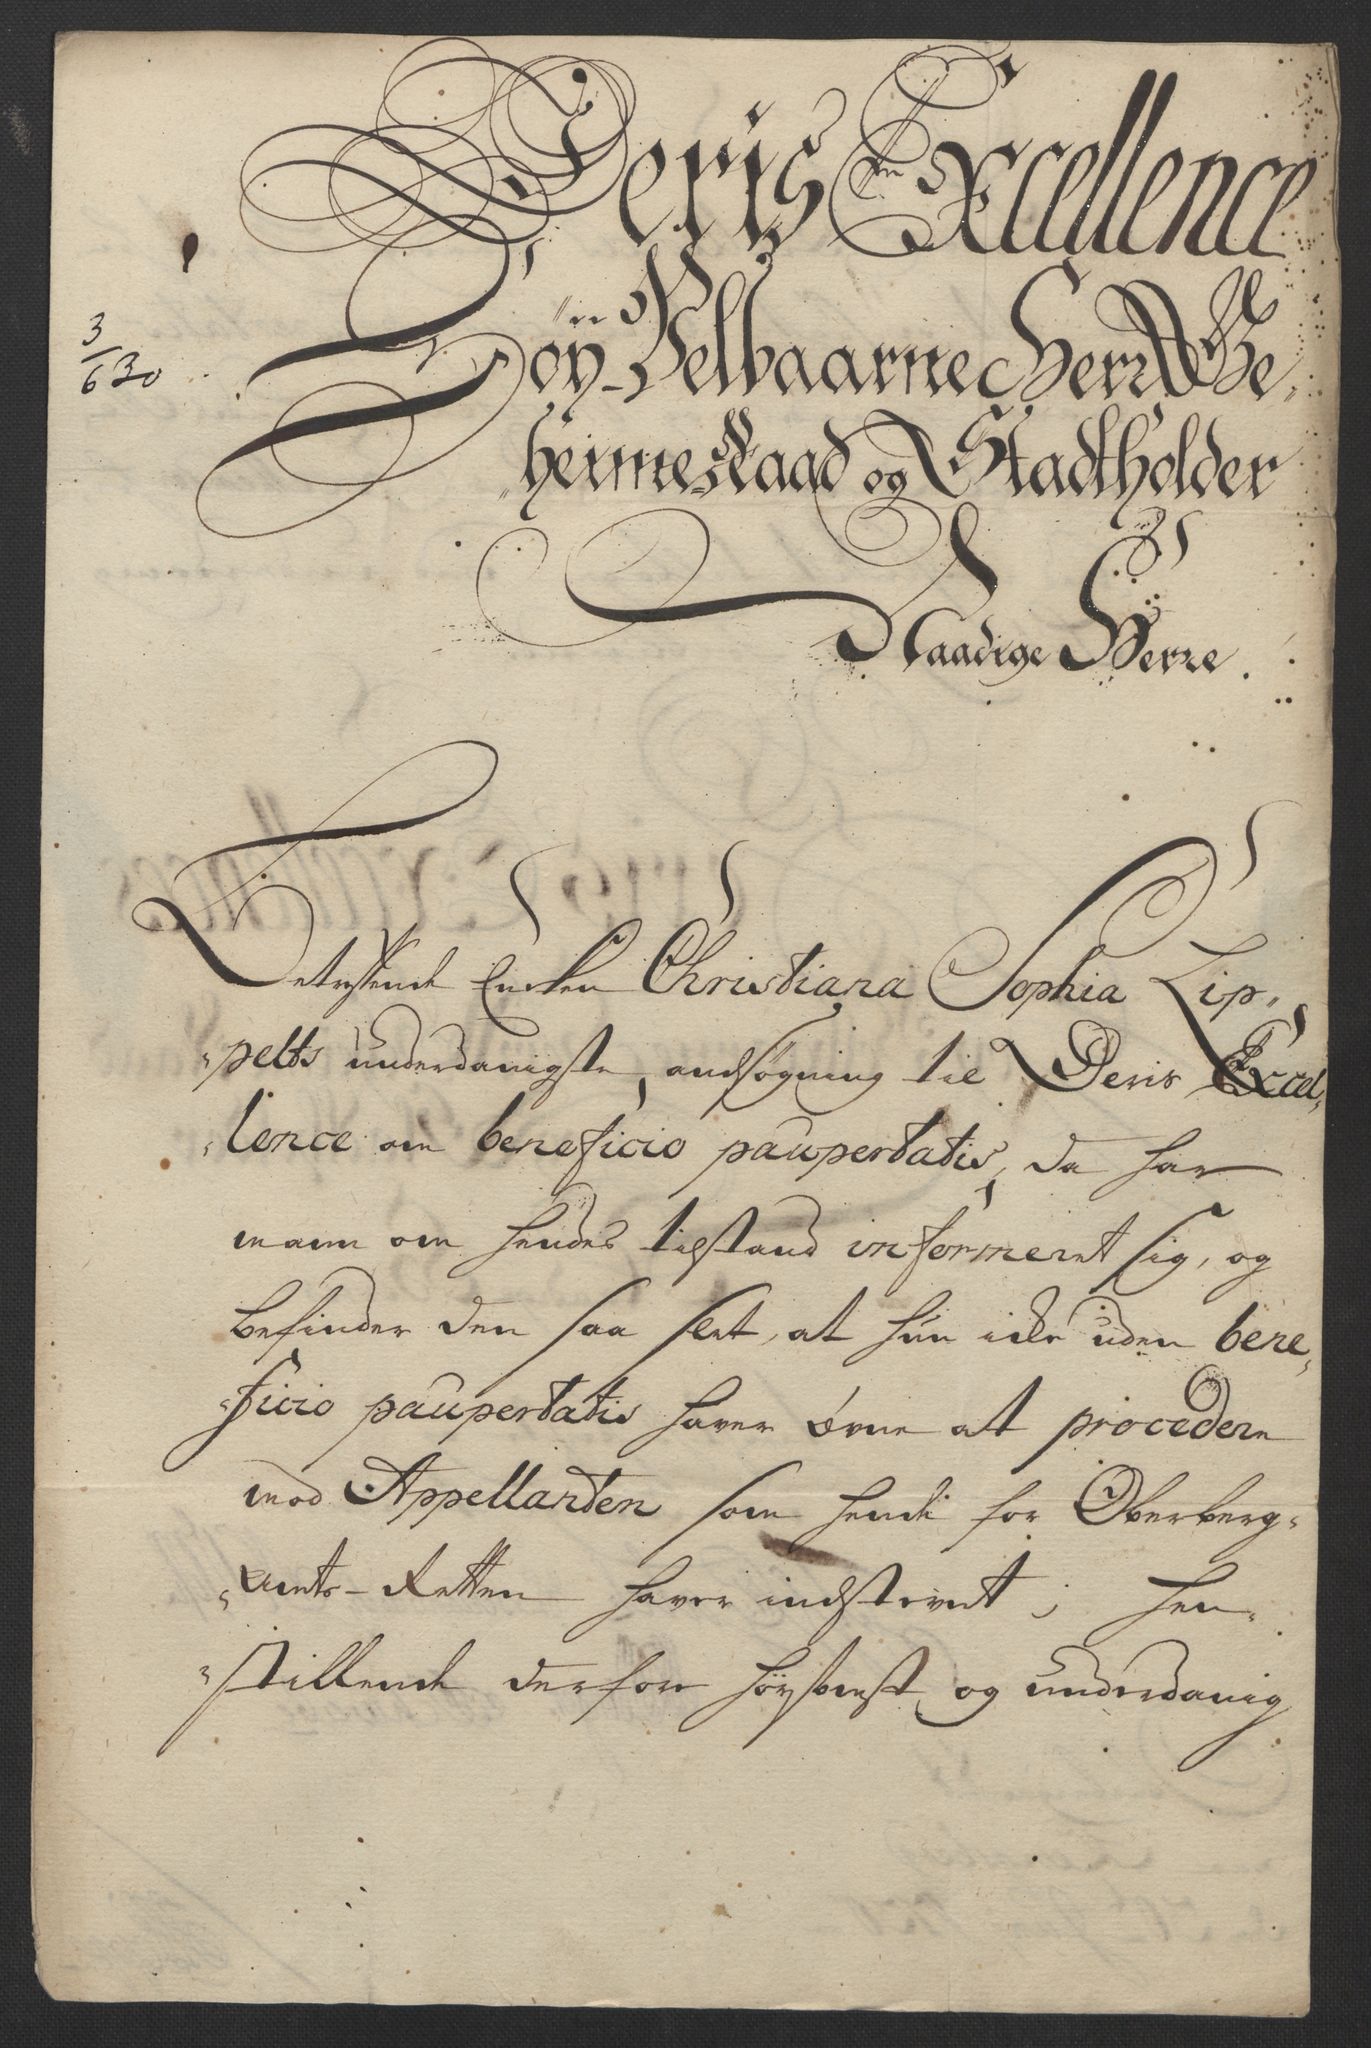 Deris Excellence
3/6 30
Höÿ-Velbaarne Herr Ge„
„heimeRaad og Stadtholder
Naadige Herre.
Betreffende Encken Christiana Sophia Lip„
„pelts underdanigste andsøgning til Deris Excel„
„lence om beneficio paupertatis, da har
mann om hendes tilstand informeret sig, og
befinder den saa slet, at hun icke uden bene„
„ficio paupertatis haver Evne at procedere
mod Appellanten som hende for Oberberg„
„Amts-Retten haver indstevnt; hen„
„stillende derfore höÿstvest og underdanig